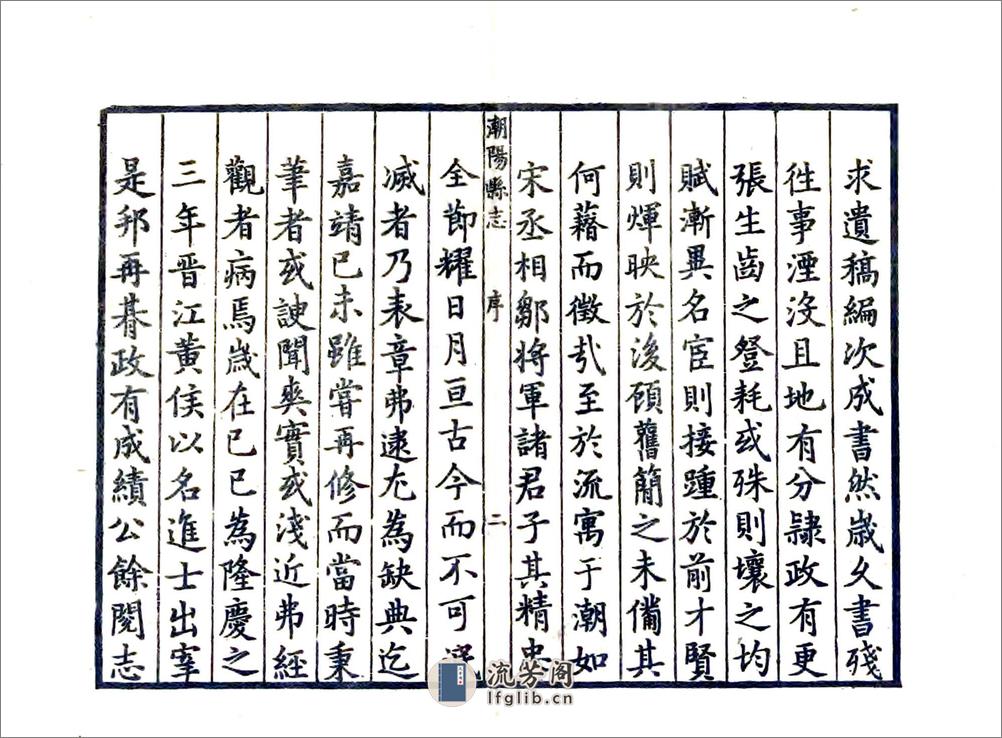 求遺稿編次成書然歳久書殘
徃事湮没且地有分隷政有更
張生齒之登耗或殊則壤之均
賦漸異名宦則接踵於前才賢
則煇映於後顧舊簡之未備其
何藉而徵哉至於流寓于潮如
宋丞相鄒將軍諸君子其精忠
潮陽縣志 序 二
全節耀日月亘古今而不可
滅者乃表章弗逮尤為缺典迄
嘉靖己未雖嘗再修而當時秉
筆者或諛聞爽實或淺近弗經
觀者病焉歳在己巳為隆慶之
三年晉江黃侯以名進士出宰
是邦再朞政有成績公餘閱志
流芳阁
lfglib.cn